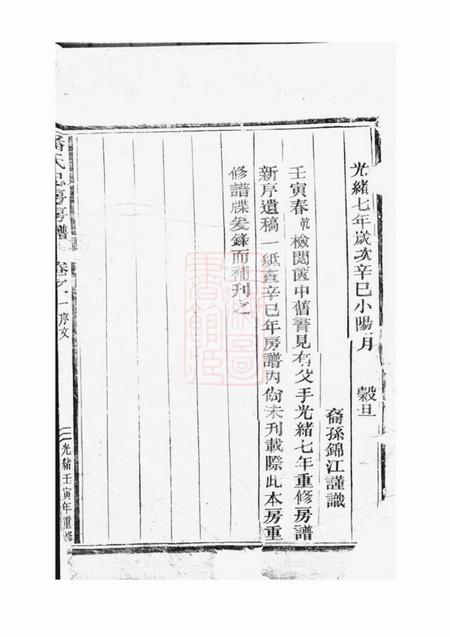 光緒七年歲次辛巳小陽月 穀旦
裔孫錦江謹識
壬寅春乾檢閱篋中舊書見有父手光緒七年重修房譜
新序遺稿一紙查辛巳年房譜內尚未刊載際此本房重
修譜牒爰錄而補刊之
潘氏忠房房譜 卷之一 序文 光緒壬寅年重修